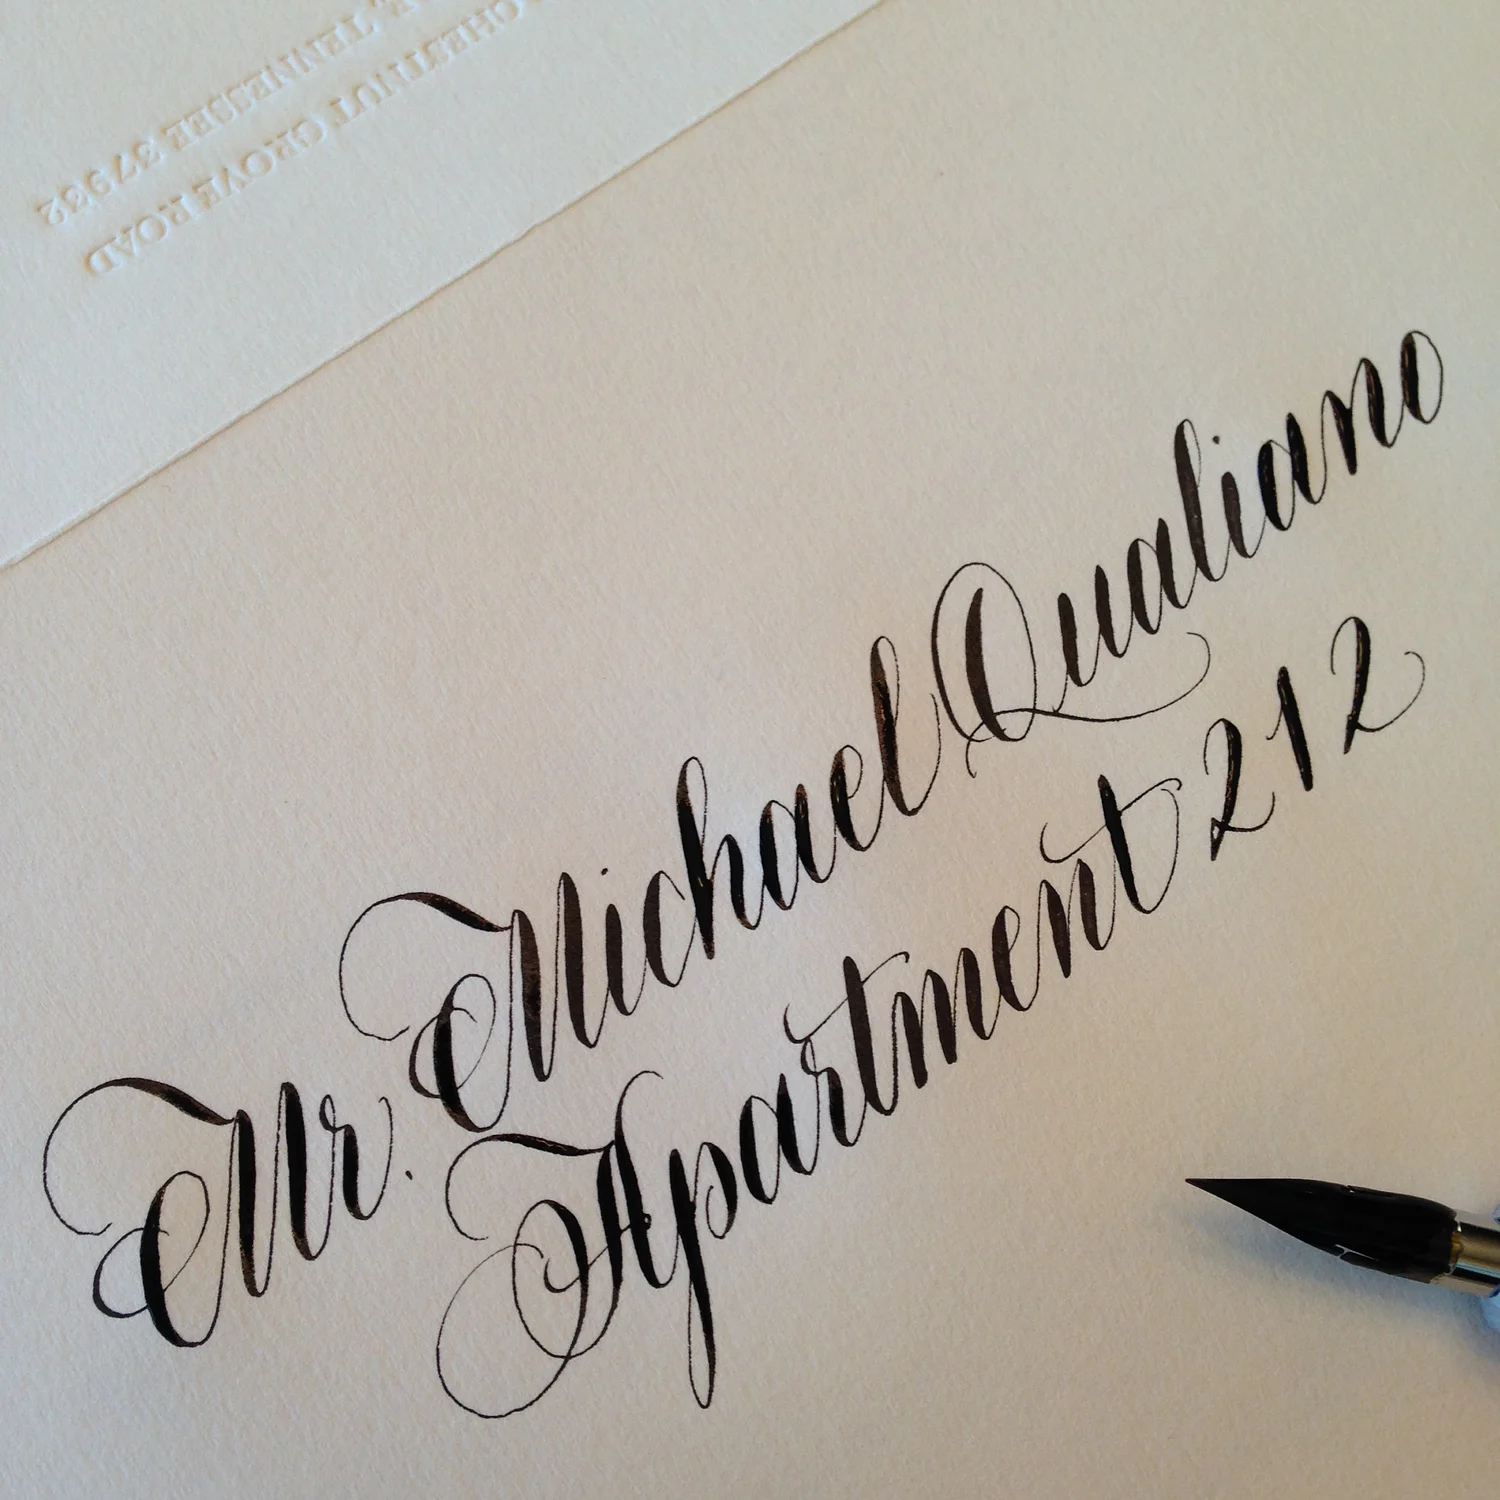 CHESTNUT GROVE ROAD
TENNESSEE 37932
Mr. Michael Qualiano
Apartment 212